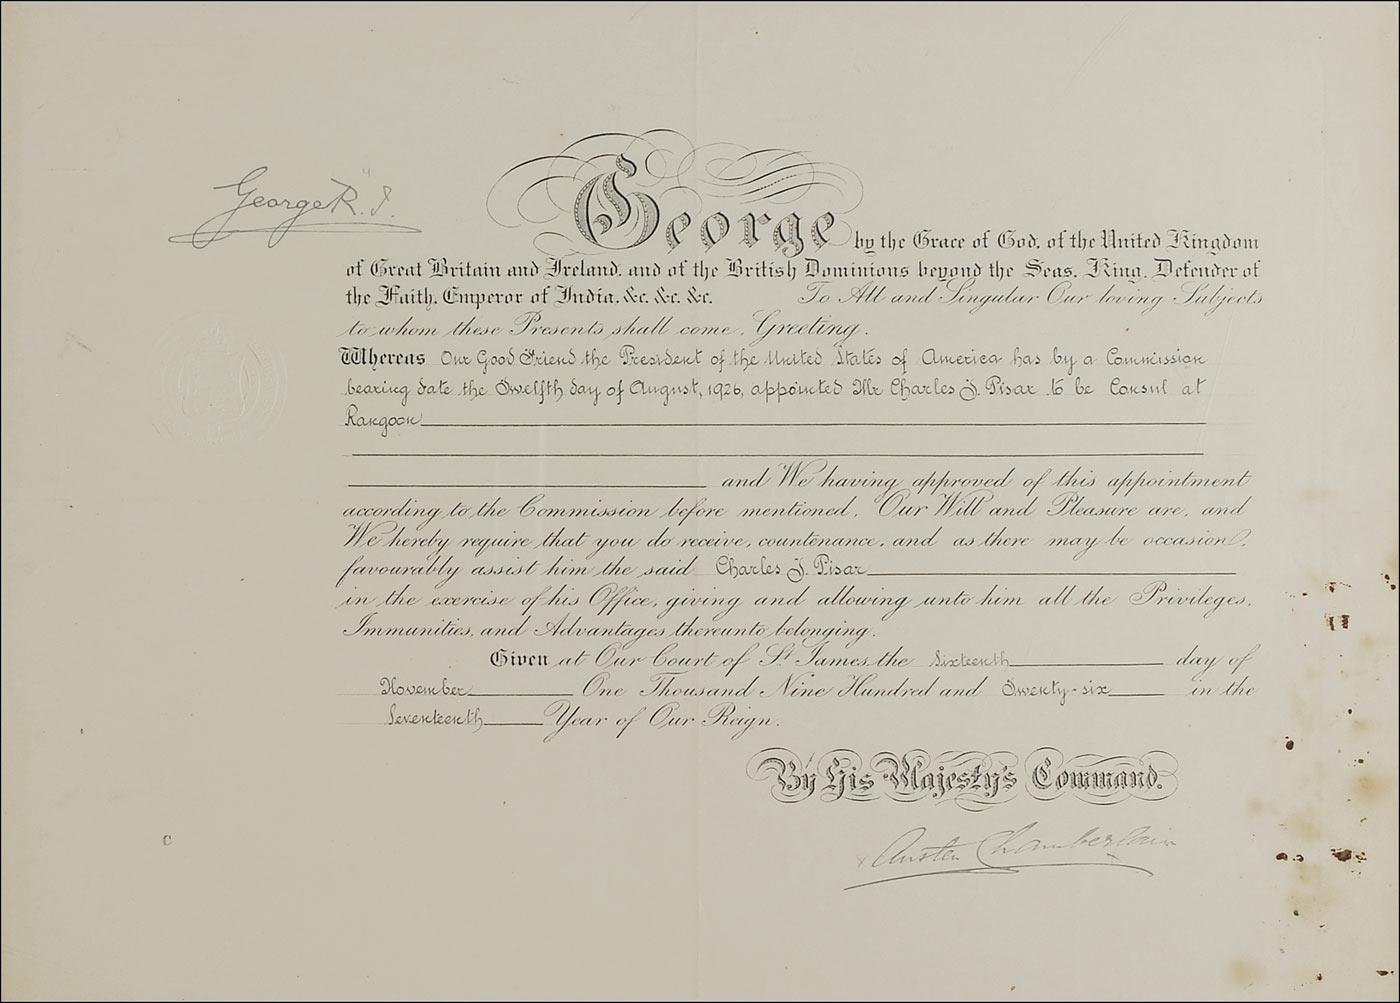 George R. I.
George by the Grace of God, of the United Kingdom
of Great Britain and Ireland, and of the British Dominions beyond the Seas, King, Defender of
the Faith, Emperor of India, &c. &c. &c. To All and Singular Our loving Subjects
to whom these Presents shall come, Greeting.
Whereas Our Good Friend the President of the United States of America has by a Commission
bearing date the Twelfth day of August, 1926, appointed Mr Charles J. Pisar to be Consul at
Rangoon
and We having approved of this appointment
according to the Commission before mentioned, Our Will and Pleasure are, and
We hereby require that you do receive, countenance, and as there may be occasion,
favourably assist him the said Charles J. Pisar
in the exercise of his Office, giving and allowing unto him all the Privileges,
Immunities, and Advantages thereunto belonging.
Given at Our Court of St James, the Sixteenth day of
November One Thousand Nine Hundred and Twenty-six in the
Seventeenth Year of Our Reign.
By His Majesty's Command.
C
Austen Chamberlain